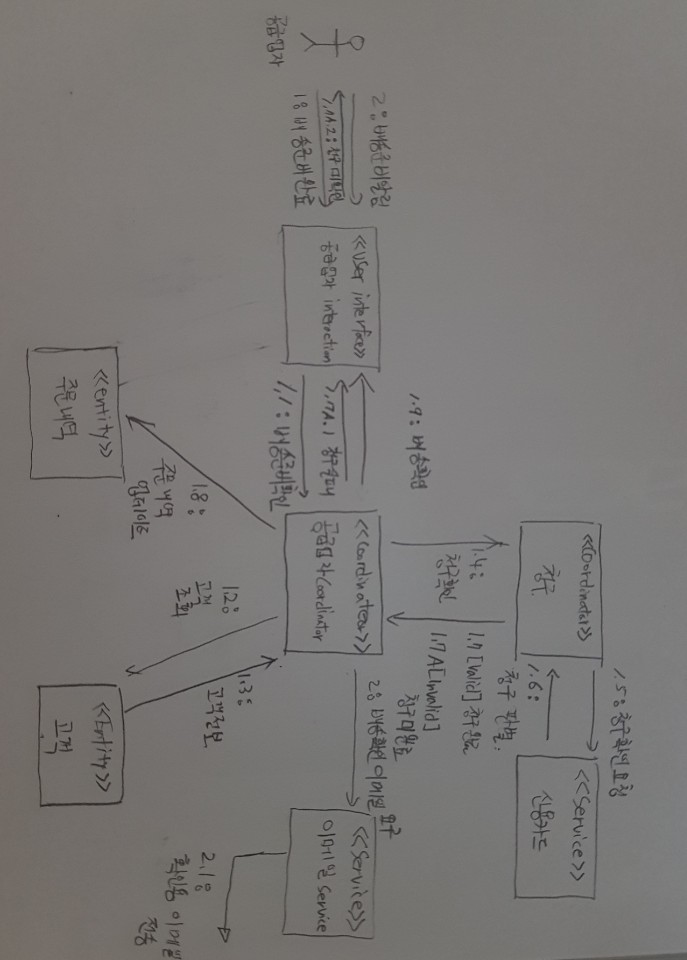 1.5: 청구확인 요청
<<Coordinator>>
청구
<<Service>>
신용카드
1.6:
청구 판별.
1.4:
청구확인
1.7 [Valid] 청구완료
1.7A [Invalid]
청구미완료
1.9: 배송확인
2: 배송확인 이메일 요구
2: 배송준비알림
1: 배송준비완료
공급업자
<<User interface>>
공급업자 interaction
1.7A.1
1.1: 배송준비확인
<<Coordinator>>
공급업자 Coordinator
<<Service>>
이메일 Service
2.1:
확인용 이메일
전송
1.8:
주문내역
업데이트
1.2:
고객
조회
1.3:
고객정보
<<entity>>
주문내역
<<Entity>>
고객